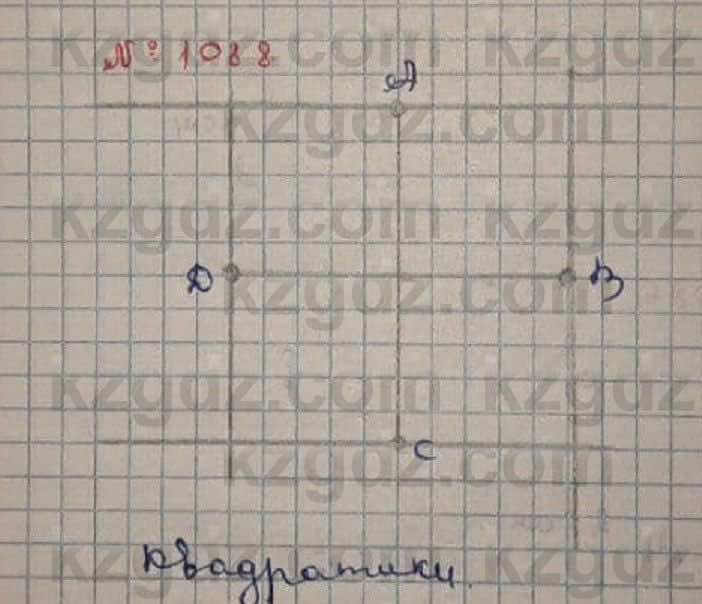 № 1088
kzgdz.com kzgdz
A
kzgdz.com
kzgdz.com kzgdz
D B
kzgdz.com
kzgdz.com kzgdz
C
kzgdz.com
kzgdz.com kzgdz
квадратики